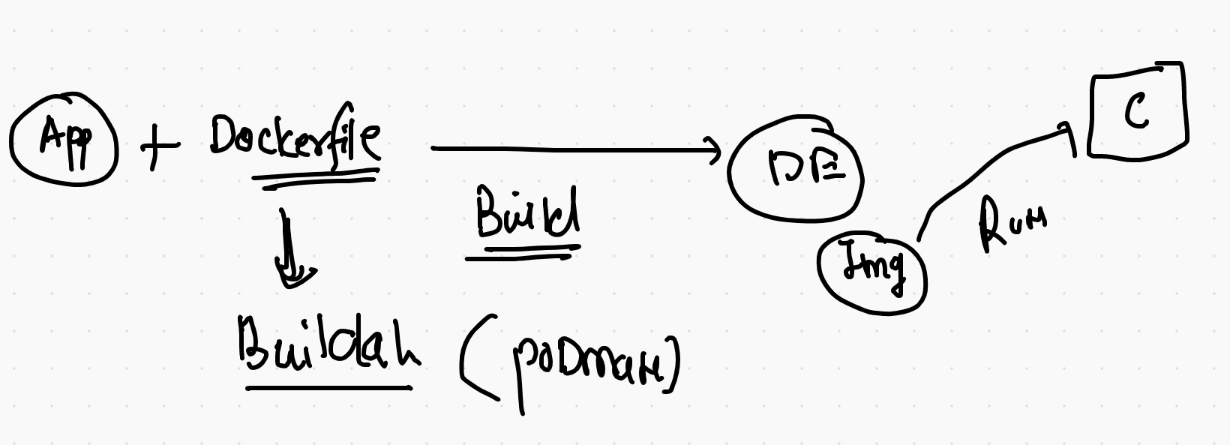 App + Dockerfile
Build
DE
Img
Run
C
Buildah (poDman)